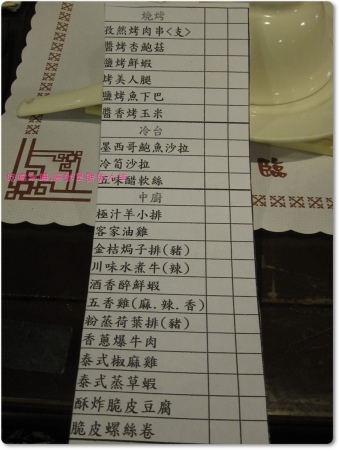 燒烤
孜然烤肉串<支>
醬烤杏鮑菇
鹽烤鮮蝦
烤美人腿
鹽烤魚下巴
醬香烤玉米
冷台
墨西哥鮑魚沙拉
冷筍沙拉
五味醋軟絲
中廚
極汁羊小排
客家油雞
金桔焗子排(豬)
川味水煮牛(辣)
酒香醉鮮蝦
五香雞(麻.辣.香)
粉蒸荷葉排(豬)
香蔥爆牛肉
泰式椒麻雞
泰式蒸草蝦
酥炸脆皮豆腐
脆皮螺絲卷
臨